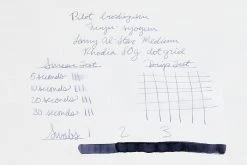 Pilot Iroshizuku
Lamy Al-Star Medium
Rhodia 80g dot grid
Smear Test
Drip Test
5 seconds
10 seconds
20 seconds
30 seconds
Swabs 1 2 3